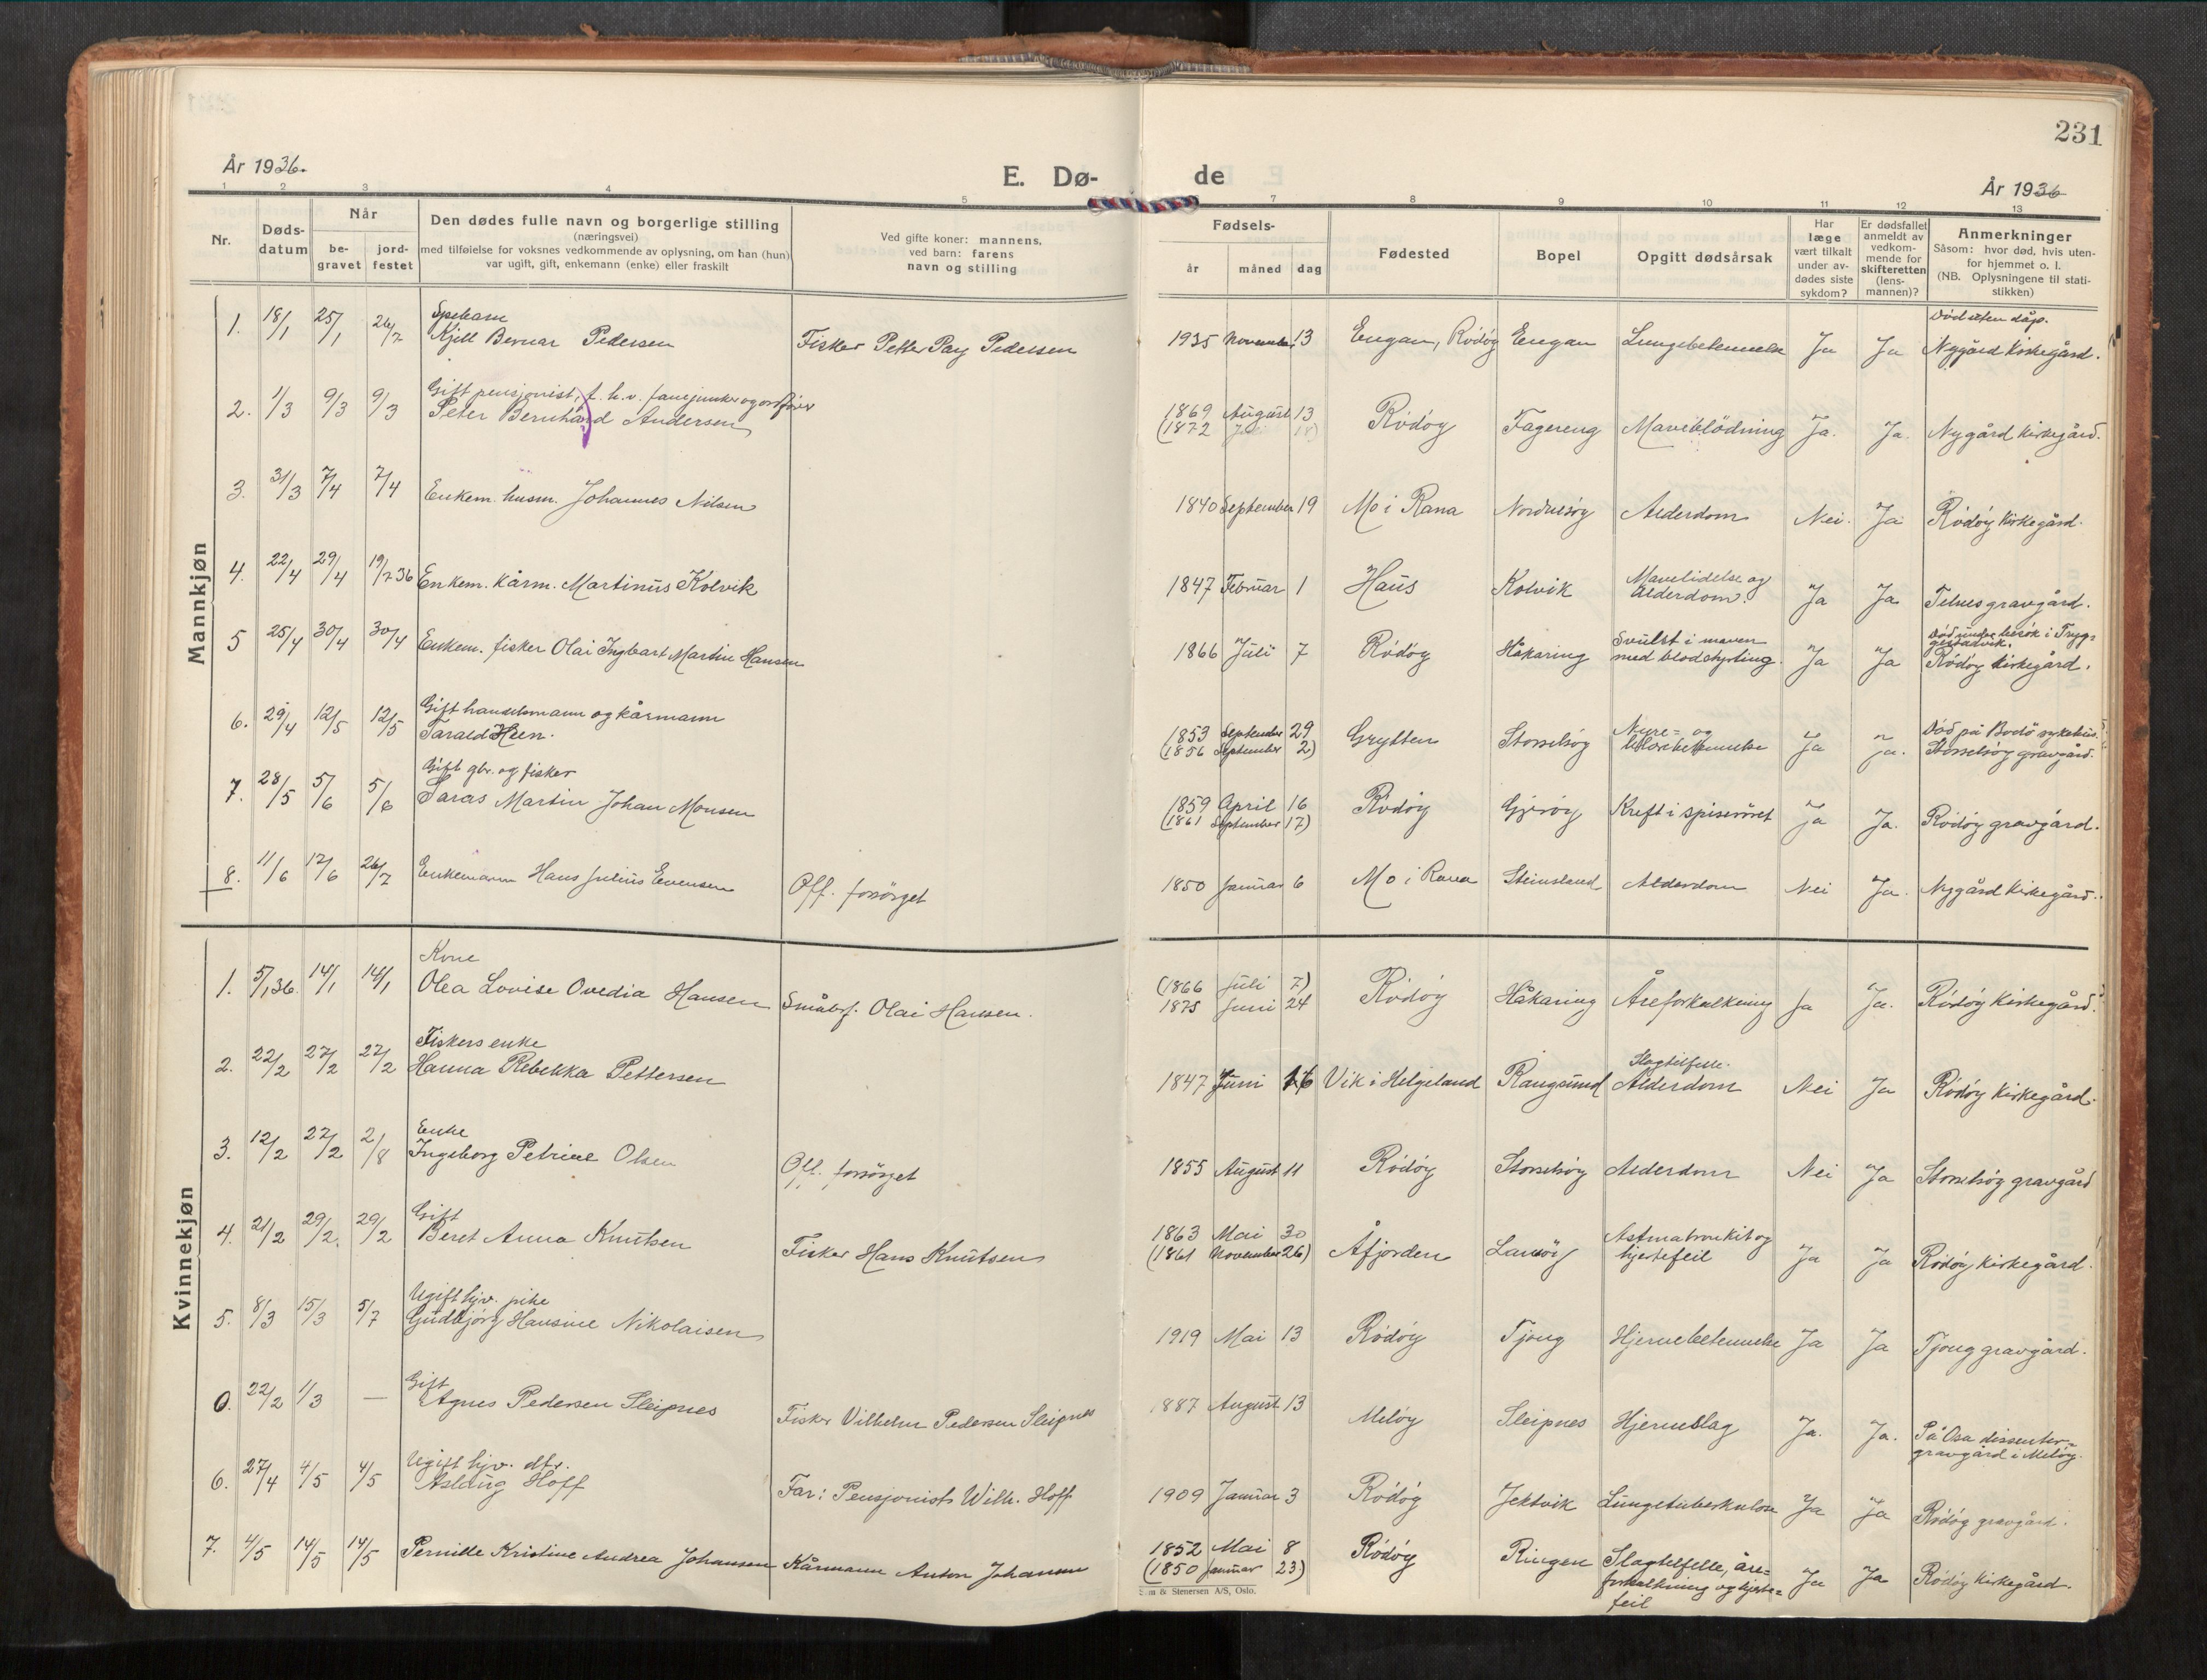 231
År 1936.
E. Dø-
de
År 1936
1 2 3 4 5 6 7 8 9 10 11 12 13
Nr.
Døds-
datum
Når
be-
gravet
jord-
festet
Den dødes fulle navn og borgerlige stilling
(næringsvei)
med tilføielse for voksnes vedkommende av oplysning, om han (hun)
var ugift, gift, enkemann (enke) eller fraskilt
Ved gifte koner: mannens,
ved barn: farens
navn og stilling
Fødsels-
år måned dag
Fødested
Bopel
Opgitt dødsårsak
Har
læge
vært tilkalt
under av-
dødes siste
sykdom?
Er dødsfallet
anmeldt av
vedkom-
mende for
skifteretten
(lens-
mannen)?
Anmerkninger
Såsom: hvor død, hvis uten-
for hjemmet o. l.
(NB. Oplysningene til stati-
stikken)
Mannkjøn
Spebarn Død uten dåp.
1. 18/1 25/1 26/7 Kjell Bernar Pedersen Fisker Petter Pay Pedersen 1935 November 13 Engan, Rödöy Engan Lungebetennelse Ja Ja Nygård kirkegård.
Gift pensjonist, f. h. v. fanejunker og ordfører
2. 1/3 9/3 9/3 Peter Bernhard Andersen 1869 August 13 Rödöy Fagereng Maveblödning Ja. Ja. Nygård kirkegård.
(1872 Juli 18)
3. 31/3 7/4 7/4 Enkem. husm. Johannes Nilsen 1840 September 19 Mo i Rana Nordnesöy Alderdom Nei. Ja Rödöy kirkegård.
4. 22/4 29/4 19/7 36 Enkem. kårm. Martinus Kolvik 1847 Februar 1 Haus Kolvik Mavelidelse og Alderdom. Ja Ja Telnes gravgård.
5 25/4 30/4 30/4 Enkem. fisker Olai Ingbart Martin Hansen 1866 Juli 7 Rödöy Håkaring Svulst i maven med blodstyrting. Ja Ja Död under besök i Tryg-
gestadvik.
Rödöy kirkegård.
Gift handelsmann og kårmann
6. 29/4 12/5 12/5 Tarald Heen. 1853 September 29 Grytten Storselsöy Nyre- og blærebetennelse Ja Ja. Död på Bodö sykehus.
(1856 September 2) Storselsöy gravgård.
Gift gbr. og fisker
7. 28/5 5/6 5/6 Saras Martin Johan Monsen 1859 April 16 Rödöy Gjeröy Kreft i spiseröret Ja Ja. Rödöy gravgård.
(1861 September 17)
8. 11/6 17/6 26/7 Enkemann Hans Julius Evensen Off. forsörget 1850 Januar 6 Mo i Rana Steinsland Alderdom Nei Ja. Nygård kirkegård.
Kvinnekjøn
Kone (1866 Juli 7)
1. 5/1 36 14/1 14/1 Olea Lovise Ovedia Hansen Småbr. Olai Hansen. 1875 Juni 24 Rödöy Håkaring Åreforkalkning Ja Ja. Rödöy kirkegård.
Fiskers enke Slagtilfelle.
2. 22/2 27/2 27/2 Hanna Rebekka Pettersen 1847 Juni 16 Vik i Helgeland Rangsund Alderdom Nei Ja Rödöy kirkegård.
Enke
3. 12/2 27/2 2/8 Ingeborg Petrine Olsen Off. forsörget 1855 August 11 Rödöy Storselsöy Alderdom Nei Ja Storselsöy gravgård
Gift
4. 21/2 29/2. 29/2 Beret Anna Knutsen Fisker Hans Knutsen 1863 Mai 30 Åfjorden Astmabronkit og hjertefeil Ja Ja Rödöy kirkegård.
(1861 November 26)
Ugift hjv. pike
5. 8/3 15/3 5/7 Gudbjörg Hansine Nikolaisen 1919 Mai 13 Rödöy Tjong Hjernebetennelse Ja Ja Tjong gravgård.
Gift
0. 22/2 1/3 — Agnes Pedersen Sleipnes Fisker Vilhelm Pedersen Sleipnes 1887 August 13 Melöy Sleipnes Hjerneslag Ja. Ja. På Osa dissenter-
gravgård i Melöy.
Ugift hjv. dtr.
6. 27/4 4/5 4/5 Aslaug Hoff Far: Pensjonist Wilh. Hoff 1909 Januar 3 Rödöy Jektvik Lungetuberkulose Ja Ja Rödöy gravgård.
7. 4/5 14/5 14/5 Pernille Kristine Andrea Johansen Kårmann Anton Johansen 1852 Mai 8 Rödöy Ringen Slagtilfelle, åre-
(1850 Januar 23) forkalkning og hjerte-
feil Ja Ja Rödöy kirkegård.
& Stenersen A/S, Oslo.